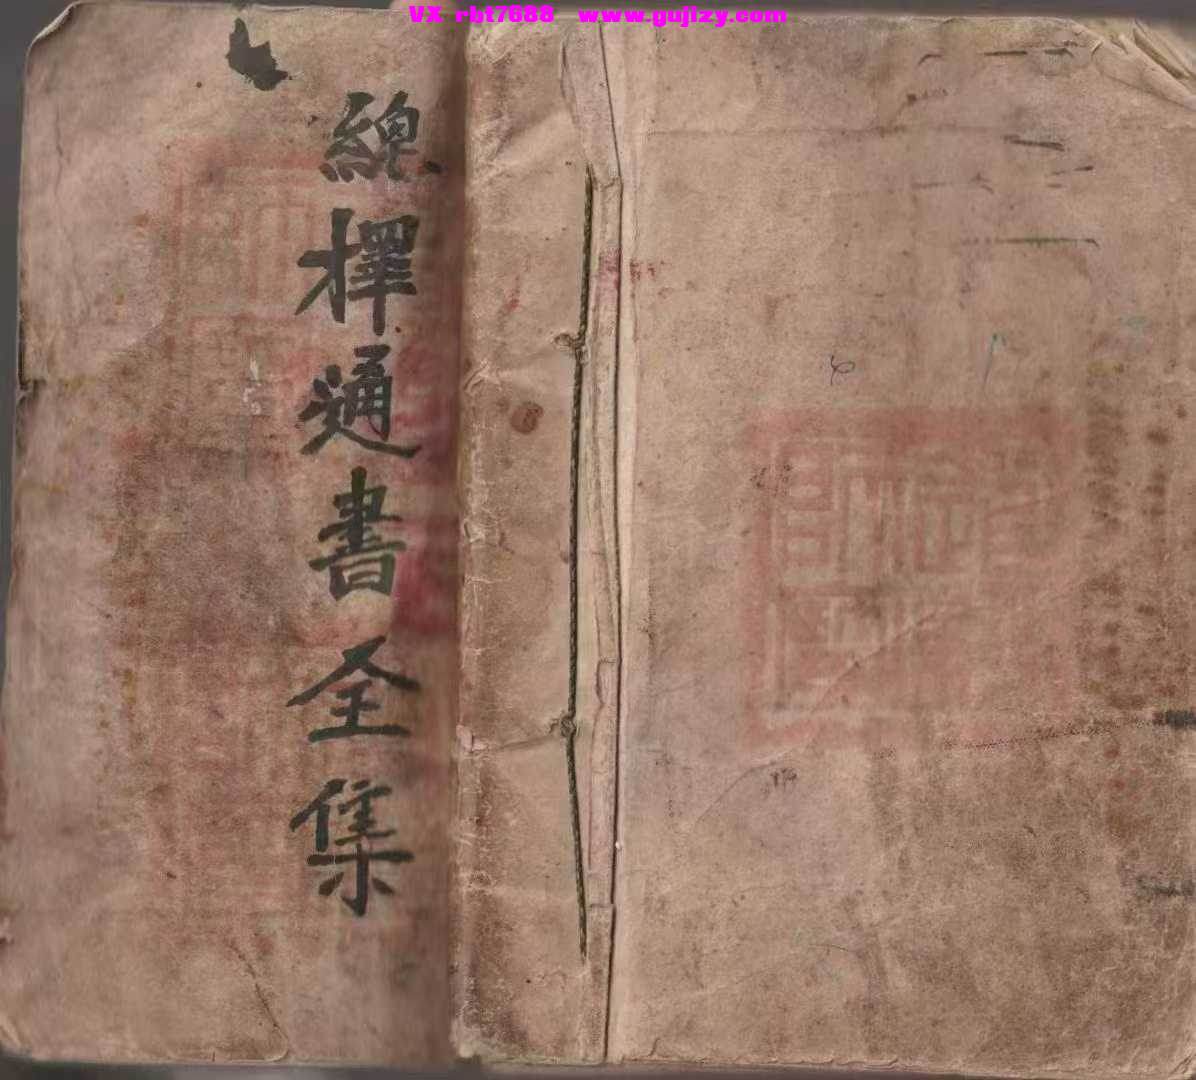 VX rbt7688 www.gujizy.com
緫擇通書全集